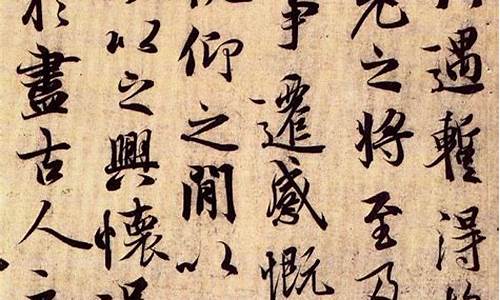 所遇暫得於
老之將至及
事遷感慨
俛仰之間以
以之興懷況
於盡古人云